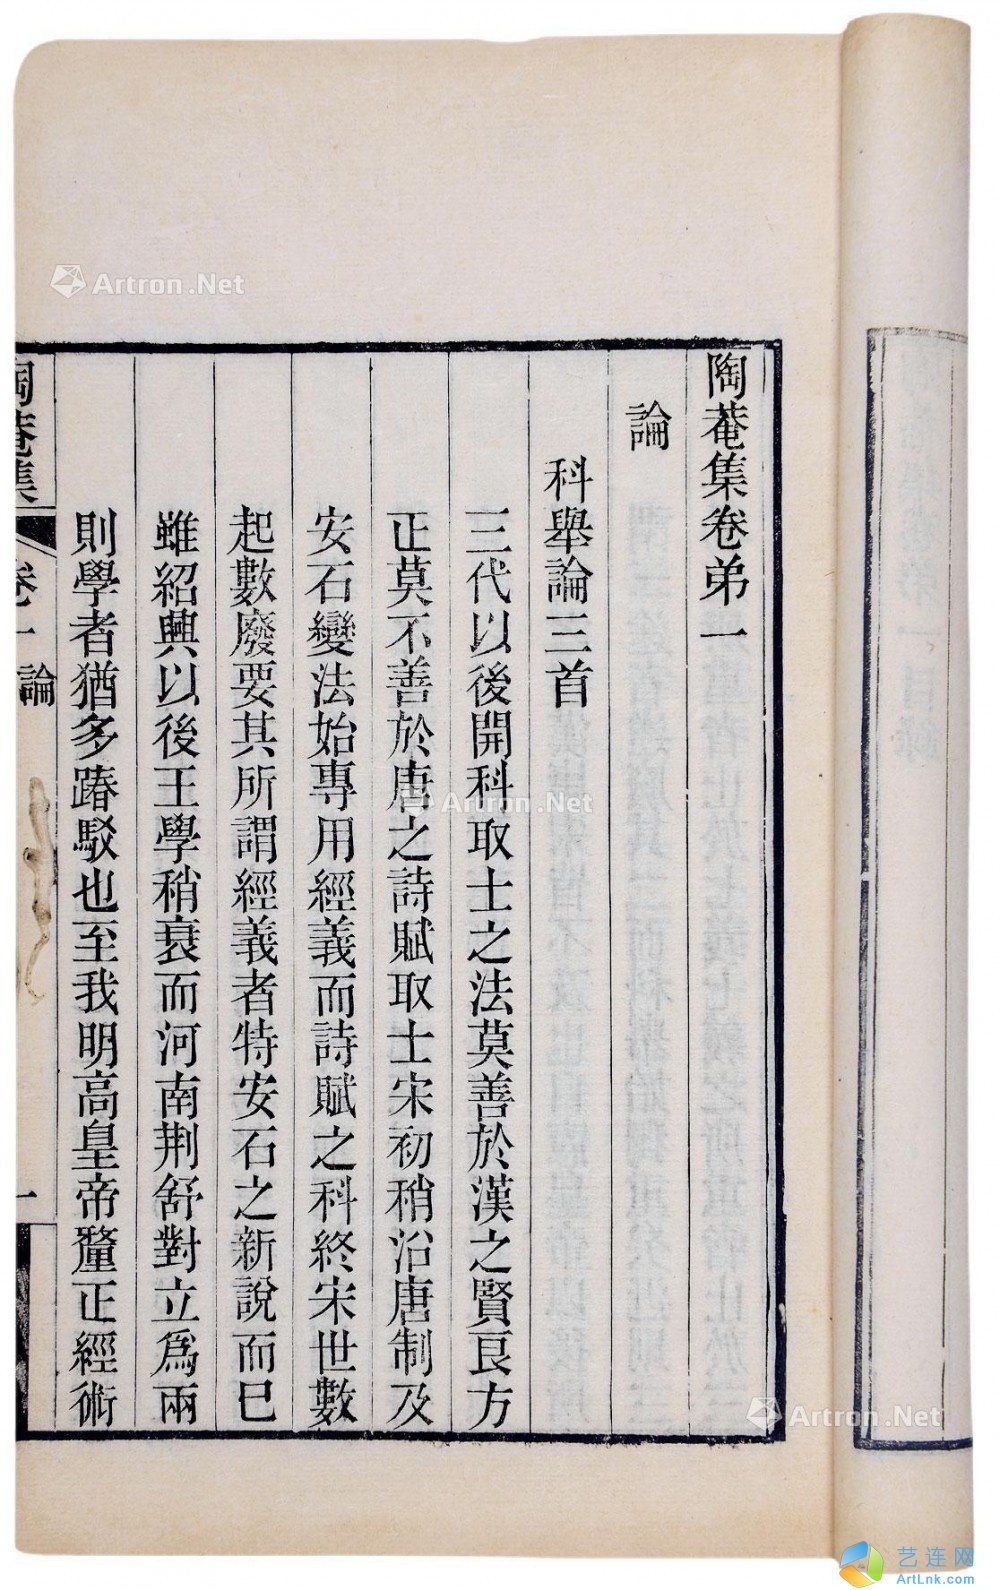 陶菴集卷弟一
論
科舉論三首
三代以後開科取士之法莫善於漢之賢良方
正莫不善於唐之詩賦取士宋初稍沿唐制及
安石變法始專用經義而詩賦之科終宋世數
起數廢要其所謂經義者特安石之新說而已
雖紹興以後王學稍衰而河南荆舒對立爲兩
則學者猶多踳駁也至我明高皇帝釐正經術
陶菴集
卷一
論
一
Artron.Net
Artron.Net
Artron.Net
艺连网
ArtLnk.com